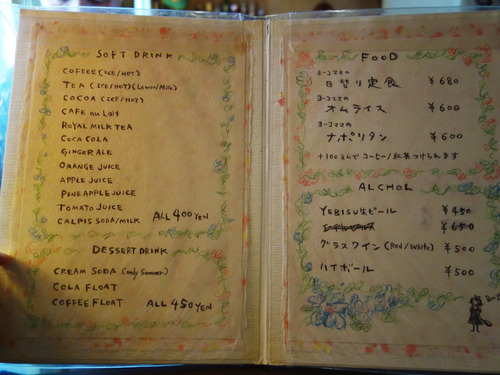 SOFT DRINK
COFFEE (ICE/HOT)
TEA (ICE/HOT) (Lemon/Milk)
COCOA (ICE/HOT)
CAFE au Lait
ROYAL MILK TEA
COCA COLA
GINGER ALE
ORANGE JUICE
APPLE JUICE
PINEAPPLE JUICE
TOMATO JUICE
CALPIS SODA/MILK ALL 400 YEN
DESSERT DRINK
CREAM SODA (only Summer)
COLA FLOAT
COFFEE FLOAT ALL 450 YEN
FOOD
ヨーコママの
日替り定食 ¥680
ヨーコママの
オムライス ¥600
ヨーコママの
ナポリタン ¥600
+100えんでコーヒー/紅茶つけられます
ALCHOL
YEBISU生ビール ¥450
¥650
グラスワイン (Red/White) ¥500
ハイボール ¥500